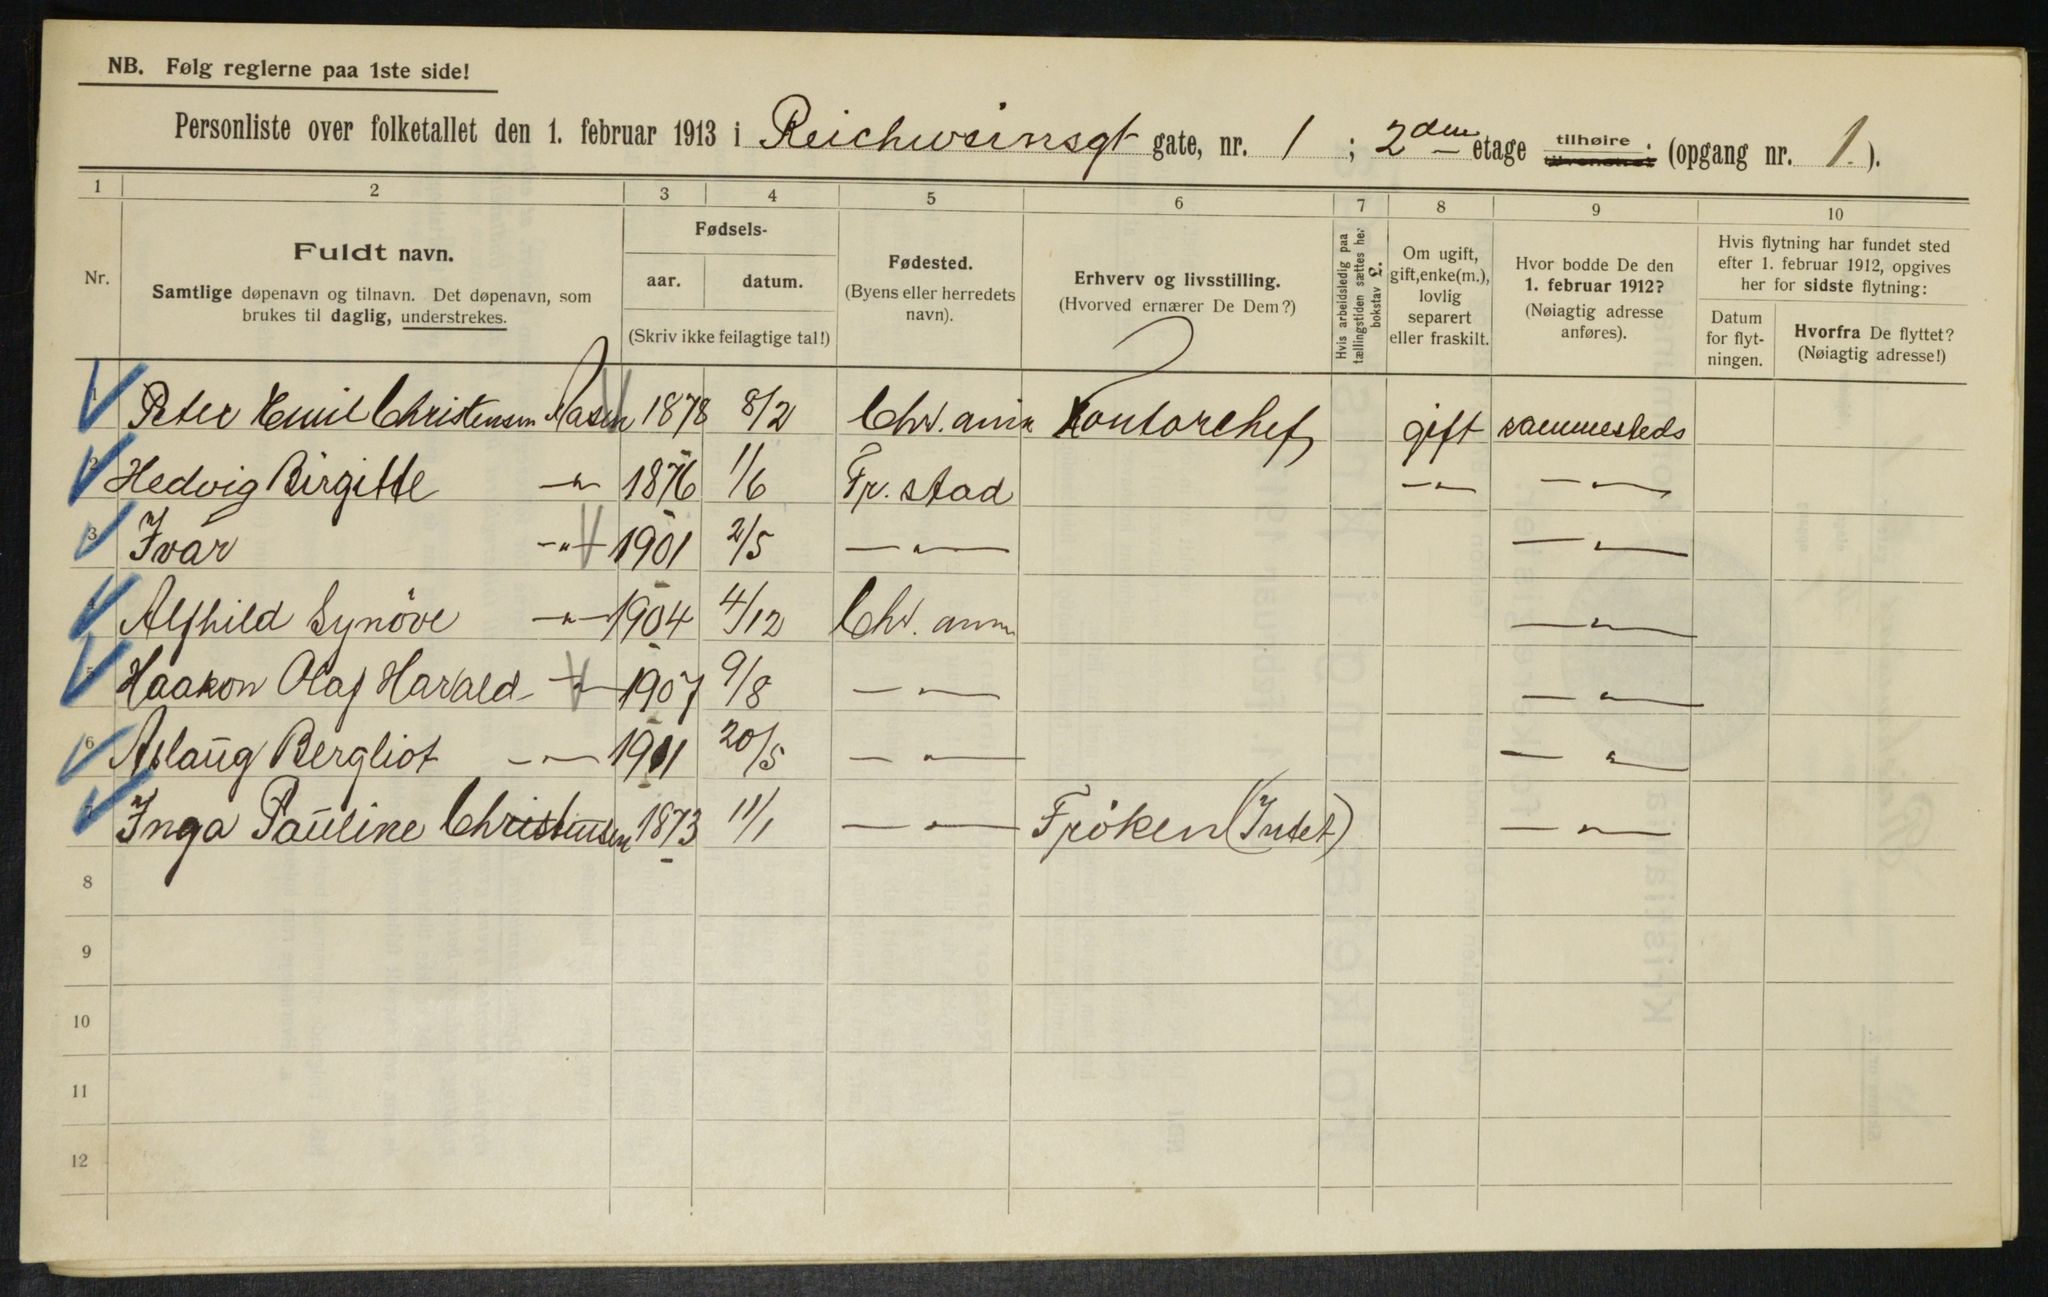 NB. Følg reglerne paa 1ste side!
Personliste over folketallet den 1. februar 1913 i Reichweinsgt gate, nr. 1 ; 2den etage tilhøire tilvenstre . (opgang nr. 1. ).
1 2 3 4 5 6 7 8 9 10
Nr.
Fuldt navn.
Samtlige døpenavn og tilnavn. Det døpenavn, som
brukes til daglig, understrekes.
Fødsels-
aar. datum.
(Skriv ikke feilagtige tal!)
Fødested.
(Byens eller herredets
navn).
Erhverv og livsstilling.
(Hvorved ernærer De Dem?)
Hvis arbeidsledig paa
tællingstiden sættes her
bokstav L.
Om ugift,
gift, enke(m.),
lovlig
separert
eller fraskilt.
Hvor bodde De den
1. februar 1912?
(Nøiagtig adresse
anføres).
Hvis flytning har fundet sted
efter 1. februar 1912, opgives
her for sidste flytning:
Datum
for flyt-
ningen.
Hvorfra De flyttet?
(Nøiagtig adresse!)
1 Peter Emil Christensen Aasen 1878 8/2 Chr.ania Kontorchef gift sammesteds
2 Hedvig Birgitte —"— 1876 1/6 Fr.stad —"— —"—
3 Ivar —"— 1901 2/5 —"— —"—
4 Alfhild Synöve —"— 1904 4/12 Chr.ania —"—
5 Haakon Olaf Harald —"— 1907 9/8 —"— —"—
6 Aslaug Bergliot —"— 1911 20/5 —"— —"—
7 Inga Pauline Christensen 1873 11/1 —"— Fröken (Intet) —"—
8
9
10
11
12